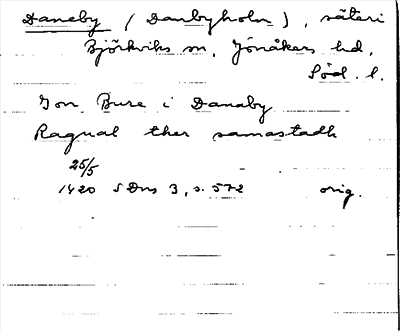 Daneby (Danbyholm), säteri
Björkviks sn, Jönåkers hd,
Söd. l.
Jon Bure i Danaby
Ragual ther samastadh
25/5
1420 SDns 3, s. 572 orig.